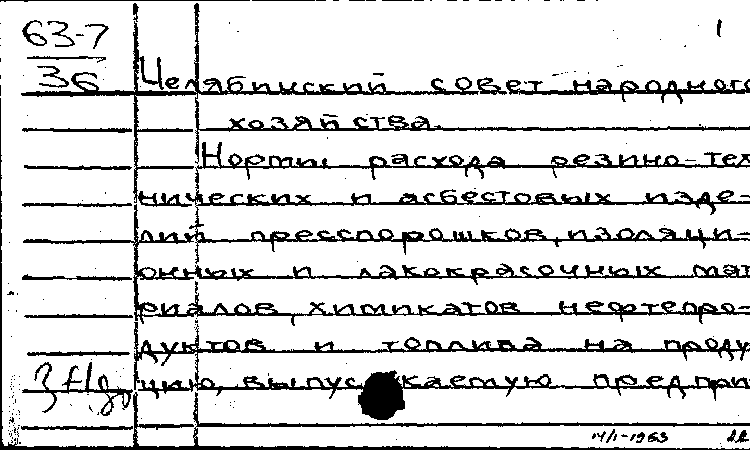 63-7
36
1
Челябинский совет народного
хозяйства.
Нормы расхода резино-тех
нических и асбестовых изде-
лий прессопорошков, изоляци-
онных и лакокрасочных мат
риалов, химикатов нефтепро-
дуктов и топлива на проду
цию, выпускаемую предпри
14/I-1963